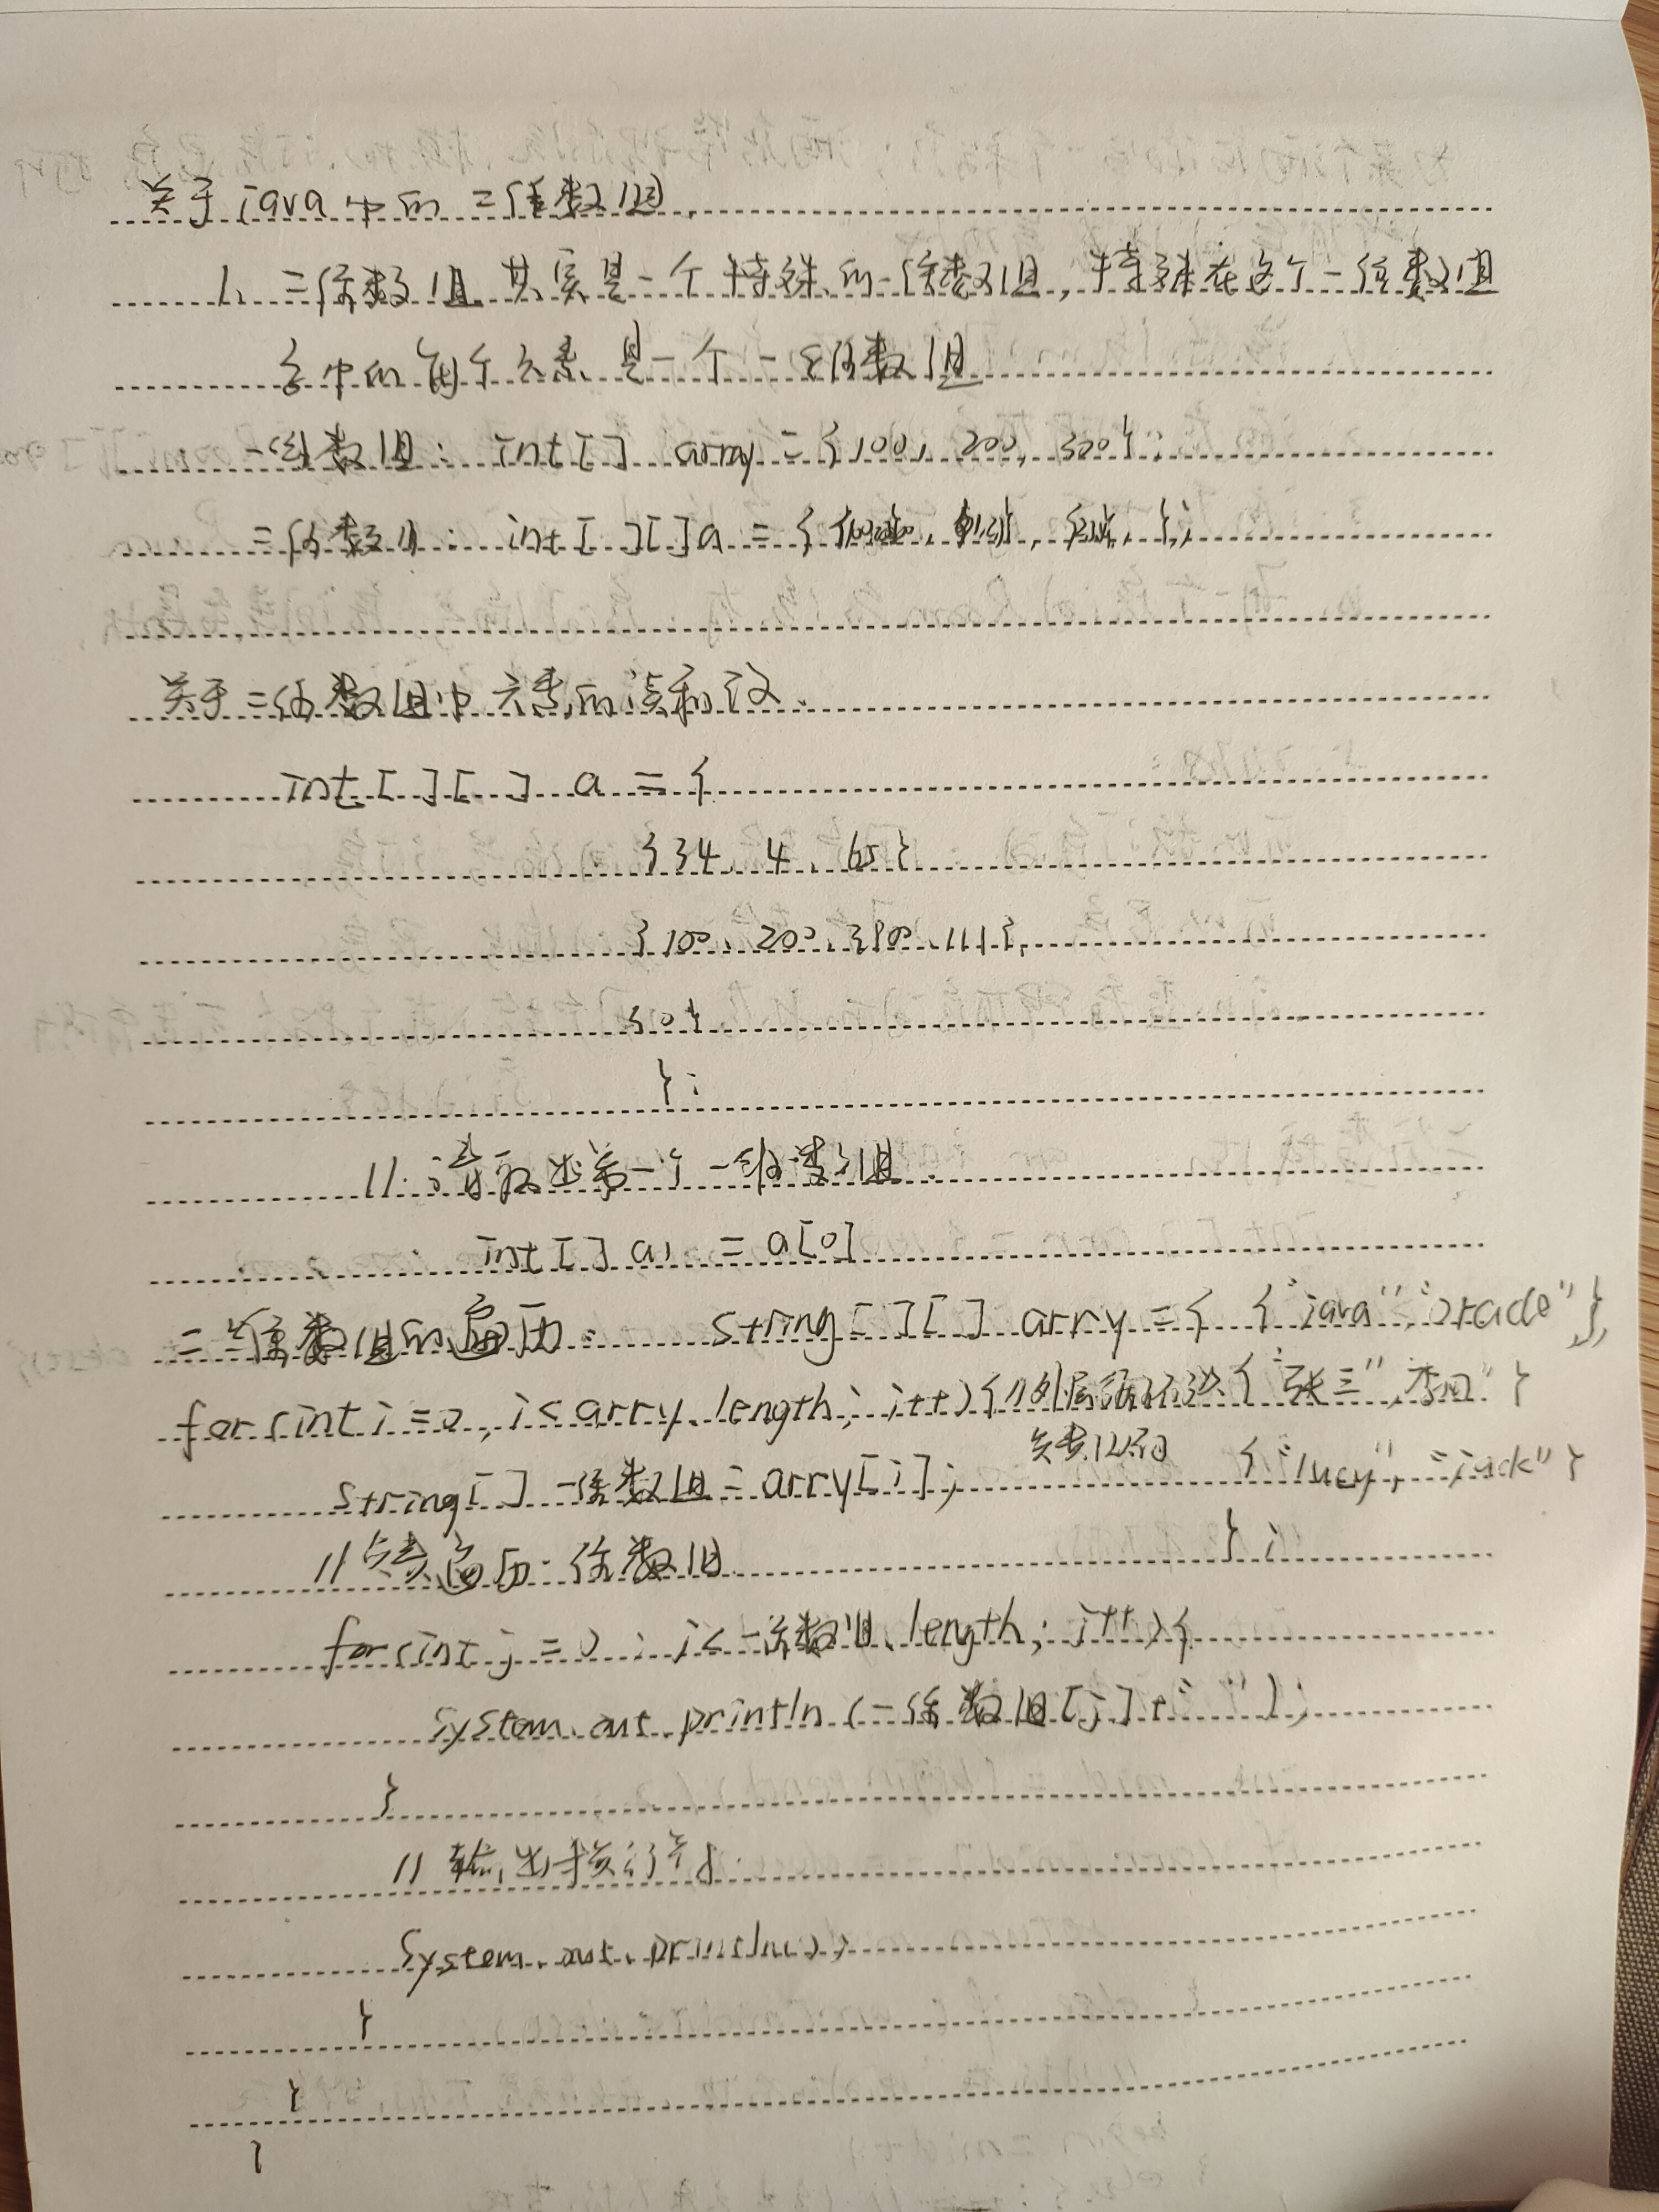 关于java中的二维数组.
1、二维数组其实是一个特殊的一维数组,特殊在这个一维数组
当中的每个元素是一个一维数组
一维数组: int[] array = {100, 200, 300};
二维数组: int[][] a = {
关于二维数组中元素的读和改.
int[][] a = {
{34, 4, 65}
{100, 200, 3900, 111},
{0}
};
// 请取出第一个一维数组.
int[] a1 = a[0]
二维数组的遍历: string[][] array = { {"java", "oracle"},
for(int i=0, i<arry.length; i++){//外层循环 {"张三", "李四"}
{"lucy", "jack"}
string[] 一维数组=arry[i];
};
//负责遍历一维数组.
for(int j=0; j<一维数组.length; j++){
System.out.println(一维数组[j]+" ");
}
// 输出换行符.
System.out.println();
}
}
}